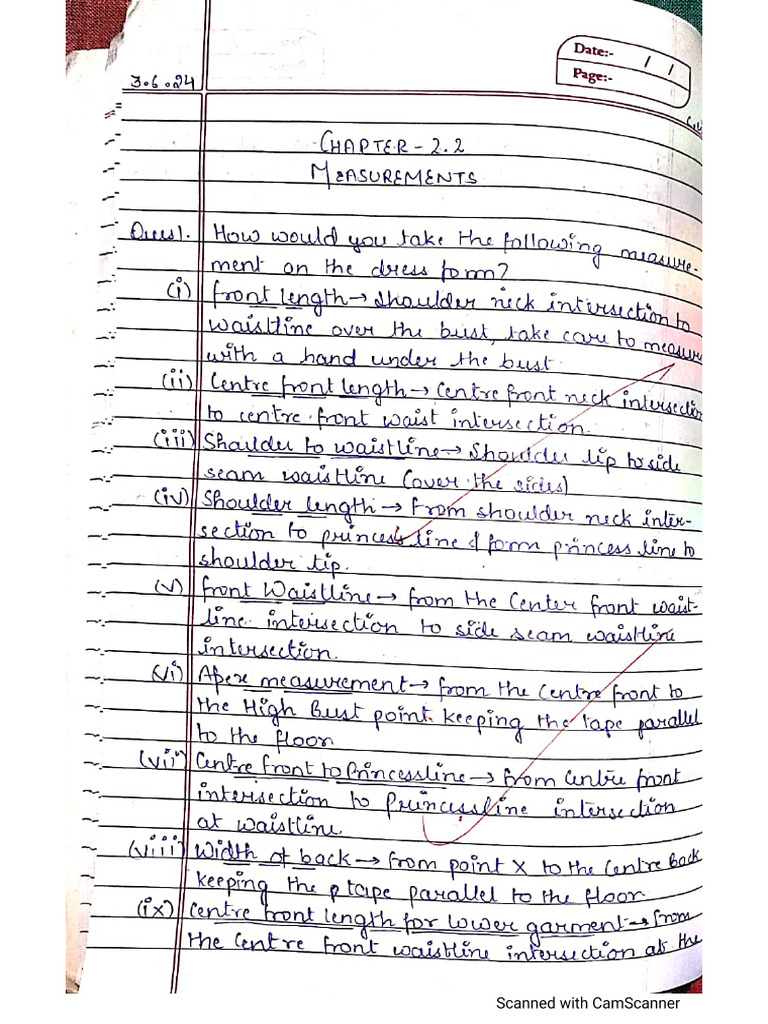 Date:- / /
Page:-
3.6.24
CHAPTER-2.2
MEASUREMENTS
Ques1. How would you take the following measure-
ment on the dress form?
(i) front length→ shoulder neck intersection to
waistline over the bust, take care to measure
with a hand under the bust.
(ii) Centre front length → Centre front neck intersection
to centre front waist intersection.
(iii) Shoulder to waistline→ shoulder tip to side
seam waistline (over the sides)
(iv) Shoulder length → From shoulder neck inter-
section to princess line & form princess line to
shoulder tip.
(v) front Waistline → from the Center front waist-
line intersection to side seam waistline
intersection.
(vi) Apex measurement → from the Centre front to
the High Bust point. keeping the tape parallel
to the floor
(vii) Centre front to Princessline → from Centre front
intersection to Princessline intersection
at waistline.
(viii) Width of back → from point X to the Centre Back
keeping the p tape parallel to the floor.
(ix) Centre front length for lower garment → from
the Centre front waistline intersection at the
Scanned with CamScanner